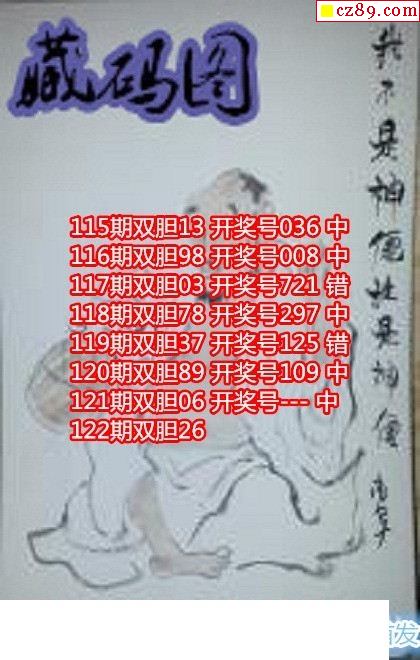 cz89.com
藏码图
我不是神但也是神僊
115期双胆13 开奖号036 中
116期双胆98 开奖号008 中
117期双胆03 开奖号721 错
118期双胆78 开奖号297 中
119期双胆37 开奖号125 错
120期双胆89 开奖号109 中
121期双胆06 开奖号--- 中
122期双胆26
首发